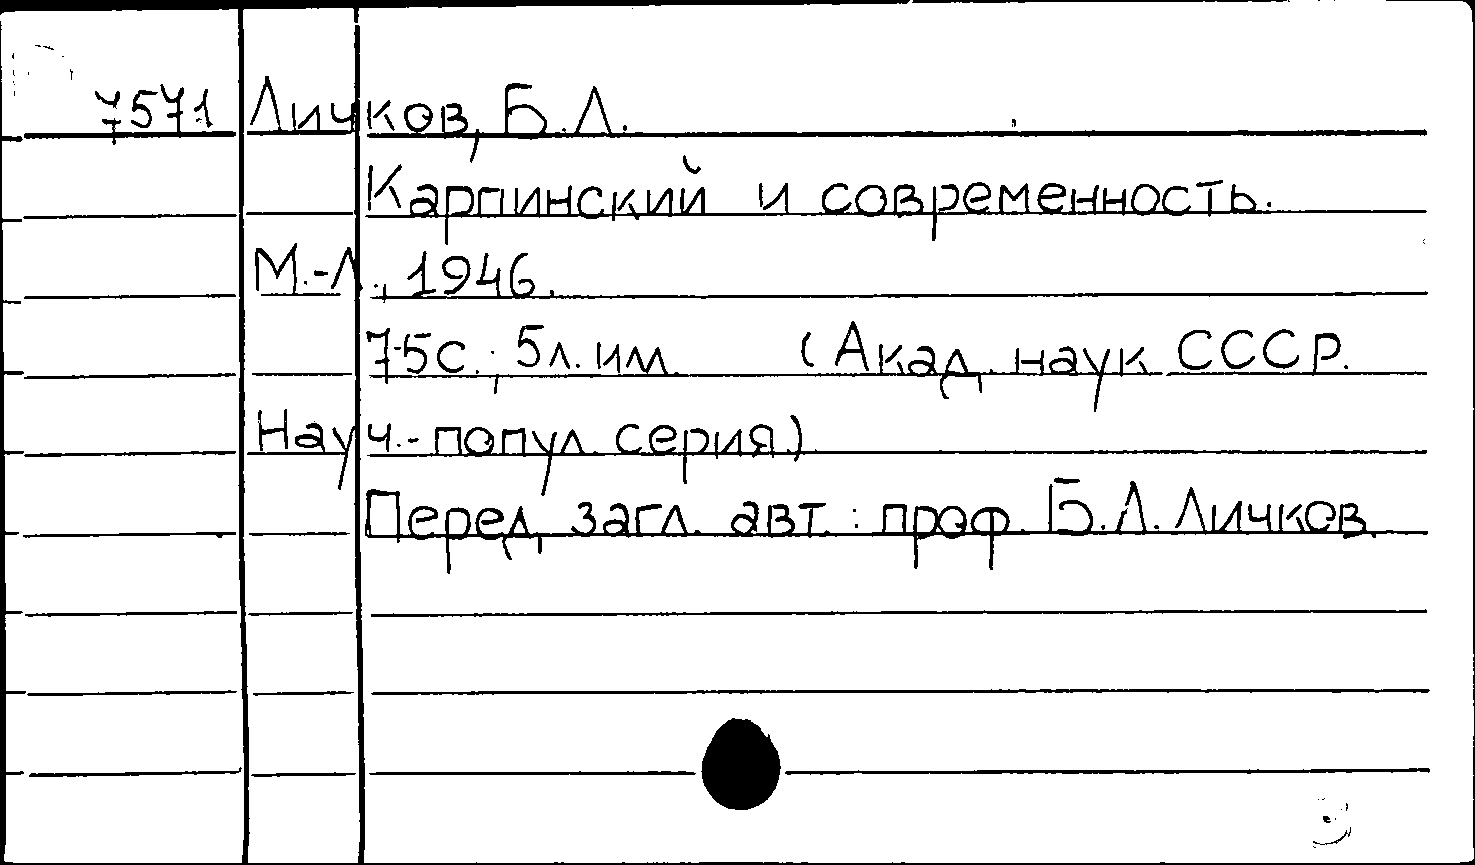 7571 Личков, Б.Л.
Карпинский и современность.
М.-Л., 1946.
75с.; 5л. им. (Акад. наук СССР.
Науч.-попул. серия.)
Перед загл. авт.: проф. Б.Л. Личков.